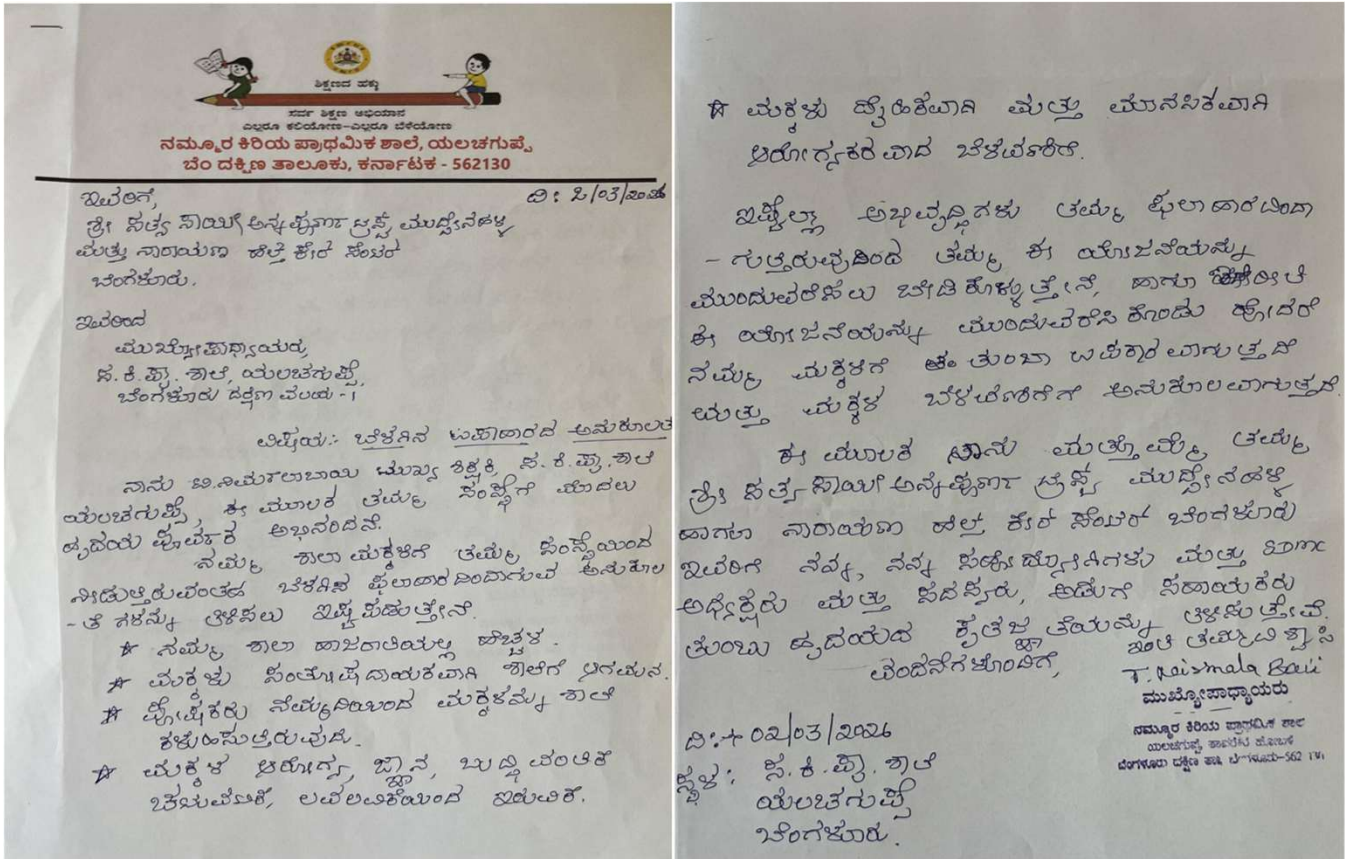 ಶಿಕ್ಷಣದ ಹಕ್ಕು
ಸರ್ವ ಶಿಕ್ಷಣ ಅಭಿಯಾನ
ಎಲ್ಲರೂ ಕಲಿಯೋಣ-ಎಲ್ಲರೂ ಬೆಳೆಯೋಣ
ನಮ್ಮೂರ ಕಿರಿಯ ಪ್ರಾಥಮಿಕ ಶಾಲೆ, ಯಲಚಗುಪ್ಪೆ
ಬೆಂ ದಕ್ಷಿಣ ತಾಲೂಕು, ಕರ್ನಾಟಕ - 562130
ಇವರಿಗೆ, ದಿ: 2/03/೨೦೨೬
ಶ್ರೀ ಸತ್ಯ ಸಾಯೀ ಅನ್ನಪೂರ್ಣ ಟ್ರಸ್ಟ್ ಮುದ್ದೇನಹಳ್ಳಿ
ಮತ್ತು ನಾರಾಯಣ ಹೆಲ್ತ್ ಕೇರ್ ಸೆಂಟರ್
ಬೆಂಗಳೂರು.
ಇವರಿಂದ
ಮುಖ್ಯೋಪಾಧ್ಯಾಯರು,
ಸ.ಕಿ.ಪ್ರಾ. ಶಾಲೆ, ಯಲಚಗುಪ್ಪೆ,
ಬೆಂಗಳೂರು ದಕ್ಷಿಣ ವಲಯ-1
ವಿಷಯ:- ಬೆಳಗಿನ ಉಪಾಹಾರದ ಅನುಕೂಲತೆ
ನಾನು ಟಿ.ನಿರ್ಮಲಾಬಾಯಿ ಮುಖ್ಯ ಶಿಕ್ಷಕಿ, ಸ.ಕಿ.ಪ್ರಾ.ಶಾಲೆ
ಯಲಚಗುಪ್ಪೆ, ಈ ಮೂಲಕ ತಮ್ಮ ಸಂಸ್ಥೆಗೆ ಮೊದಲು
ಹೃದಯ ಪೂರ್ವಕ ಅಭಿನಂದನೆ.
ನಮ್ಮ ಶಾಲಾ ಮಕ್ಕಳಿಗೆ ತಮ್ಮ ಸಂಸ್ಥೆಯಿಂದ
ನೀಡುತ್ತಿರುವಂತಹ ಬೆಳಗಿನ ಫಲಾಹಾರದಿಂದಾಗುವ ಅನುಕೂಲ
-ತೆ ಗಳನ್ನು ತಿಳಿಸಲು ಇಷ್ಟ ಪಡುತ್ತೇನೆ.
☆ ನಮ್ಮ ಶಾಲಾ ಹಾಜರಾತಿಯಲ್ಲಿ ಹೆಚ್ಚಳ.
☆ ಮಕ್ಕಳು ಸಂತೋಷದಾಯಕವಾಗಿ ಶಾಲೆಗೆ ಆಗಮನ.
☆ ಪೋಷಕರು ನೆಮ್ಮದಿಯಿಂದ ಮಕ್ಕಳನ್ನು ಶಾಲೆಗೆ
ಕಳುಹಿಸುತ್ತಿರುವುದು.
☆ ಮಕ್ಕಳ ಆರೋಗ್ಯ, ಜ್ಞಾನ, ಬುದ್ಧಿವಂತಿಕೆ
ಚಟುವಟಿಕೆ, ಲವಲವಿಕೆಯಿಂದ ಇರುವಿಕೆ.
☆ ಮಕ್ಕಳು ದೈಹಿಕವಾಗಿ ಮತ್ತು ಮಾನಸಿಕವಾಗಿ
ಆರೋಗ್ಯಕರವಾದ ಬೆಳವಣಿಗೆ.
ಇಷ್ಟೆಲ್ಲಾ ಅಭಿವೃದ್ಧಿಗಳು ತಮ್ಮ ಫಲಾಹಾರದಿಂದಾ
-ಗುತ್ತಿರುವುದರಿಂದ ತಮ್ಮ ಈ ಯೋಜನೆಯನ್ನು
ಮುಂದುವರೆಸಲು ಬೇಡಿಕೊಳ್ಳುತ್ತೇನೆ, ಹಾಗೂ ಇದೇ ರೀತಿ
ಈ ಯೋಜನೆಯನ್ನು ಮುಂದುವರೆಸಿಕೊಂಡು ಹೋದರೆ
ನಮ್ಮ ಮಕ್ಕಳಿಗೆ ತುಂಬಾ ಉಪಕಾರವಾಗುತ್ತದೆ
ಮತ್ತು ಮಕ್ಕಳ ಬೆಳವಣಿಗೆಗೆ ಅನುಕೂಲವಾಗುತ್ತದೆ.
ಈ ಮೂಲಕ ನಾನು ಮತ್ತೊಮ್ಮೆ ತಮ್ಮ
ಶ್ರೀ ಸತ್ಯಸಾಯೀ ಅನ್ನಪೂರ್ಣ ಟ್ರಸ್ಟ್ ಮುದ್ದೇನಹಳ್ಳಿ
ಹಾಗೂ ನಾರಾಯಣ ಹೆಲ್ತ್ ಕೇರ್ ಸೆಂಟರ್ ಬೆಂಗಳೂರು
ಇವರಿಗೆ ನಮ್ಮ, ನನ್ನ ಸಹೋದ್ಯೋಗಿಗಳು ಮತ್ತು SDMC
ಅಧ್ಯಕ್ಷರು ಮತ್ತು ಸದಸ್ಯರು, ಅಡುಗೆ ಸಹಾಯಕರು
ತುಂಬು ಹೃದಯದ ಕೃತಜ್ಞತೆಯನ್ನು ತಿಳಿಸುತ್ತೇವೆ.
ವಂದನೆಗಳೊಂದಿಗೆ, ಇಂತಿ ತಮ್ಮ ವಿಶ್ವಾಸಿ
T. Nirmala Bai
ಮುಖ್ಯೋಪಾಧ್ಯಾಯರು
ನಮ್ಮೂರ ಕಿರಿಯ ಪ್ರಾಥಮಿಕ ಶಾಲೆ
ಯಲಚಗುಪ್ಪೆ, ತಾವರೆಕೆರೆ ಹೋಬಳಿ
ಬೆಂಗಳೂರು ದಕ್ಷಿಣ ತಾ. ಬೆಂಗಳೂರು-562
ದಿ:- 02/03/2026
ಸ್ಥಳ: ಸ.ಕಿ.ಪ್ರಾ.ಶಾಲೆ
ಯಲಚಗುಪ್ಪೆ
ಬೆಂಗಳೂರು.